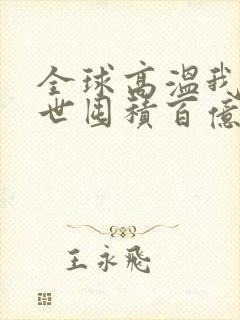 全球高溫我
世囤積百億
王永飛